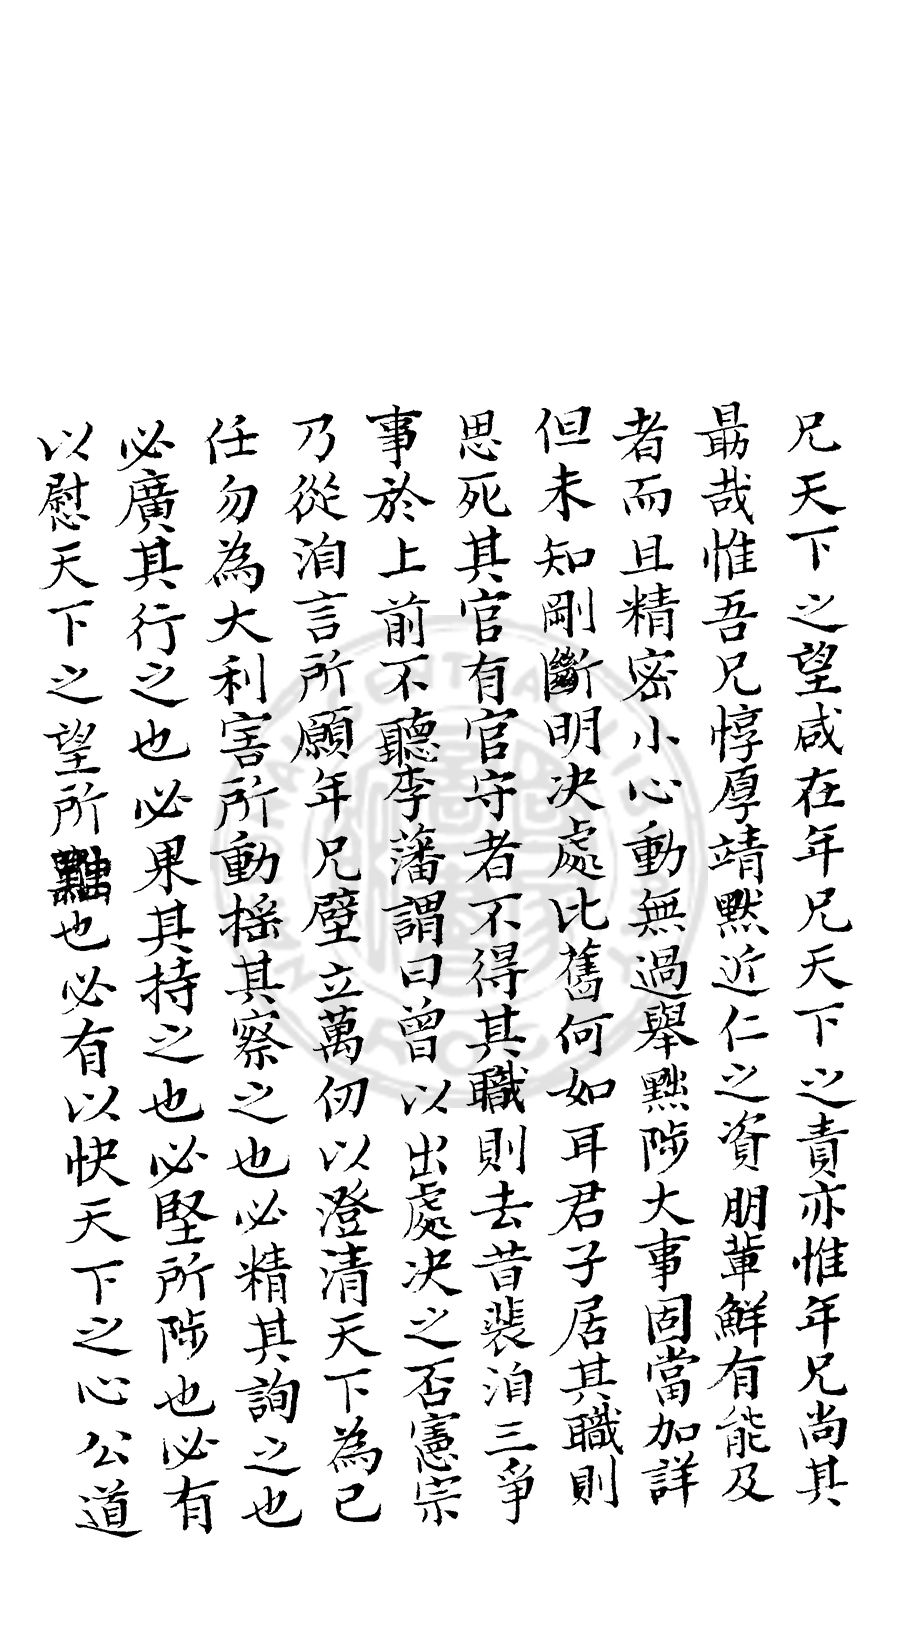 兄天下之望咸在年兄天下之責亦惟年兄尚其
最哉惟吾兄惇厚靖默近仁之資朋軰鮮有能及
者而且精密小心動無過舉黜陟大事固當加詳
但未知剛斷明决處比舊何如耳君子居其職則
思死其官有官守者不得其職則去昔裴洎三爭
事於上前不聽李藩謂曰曾以出處决之否憲宗
乃從洎言所願年兄壁立萬仞以澄清天下為己
任勿為大利害所動搖其察之也必精其詢之也
必廣其行之也必果其持之也必堅所陟也必有
以慰天下之望所黜也必有以快天下之心公道